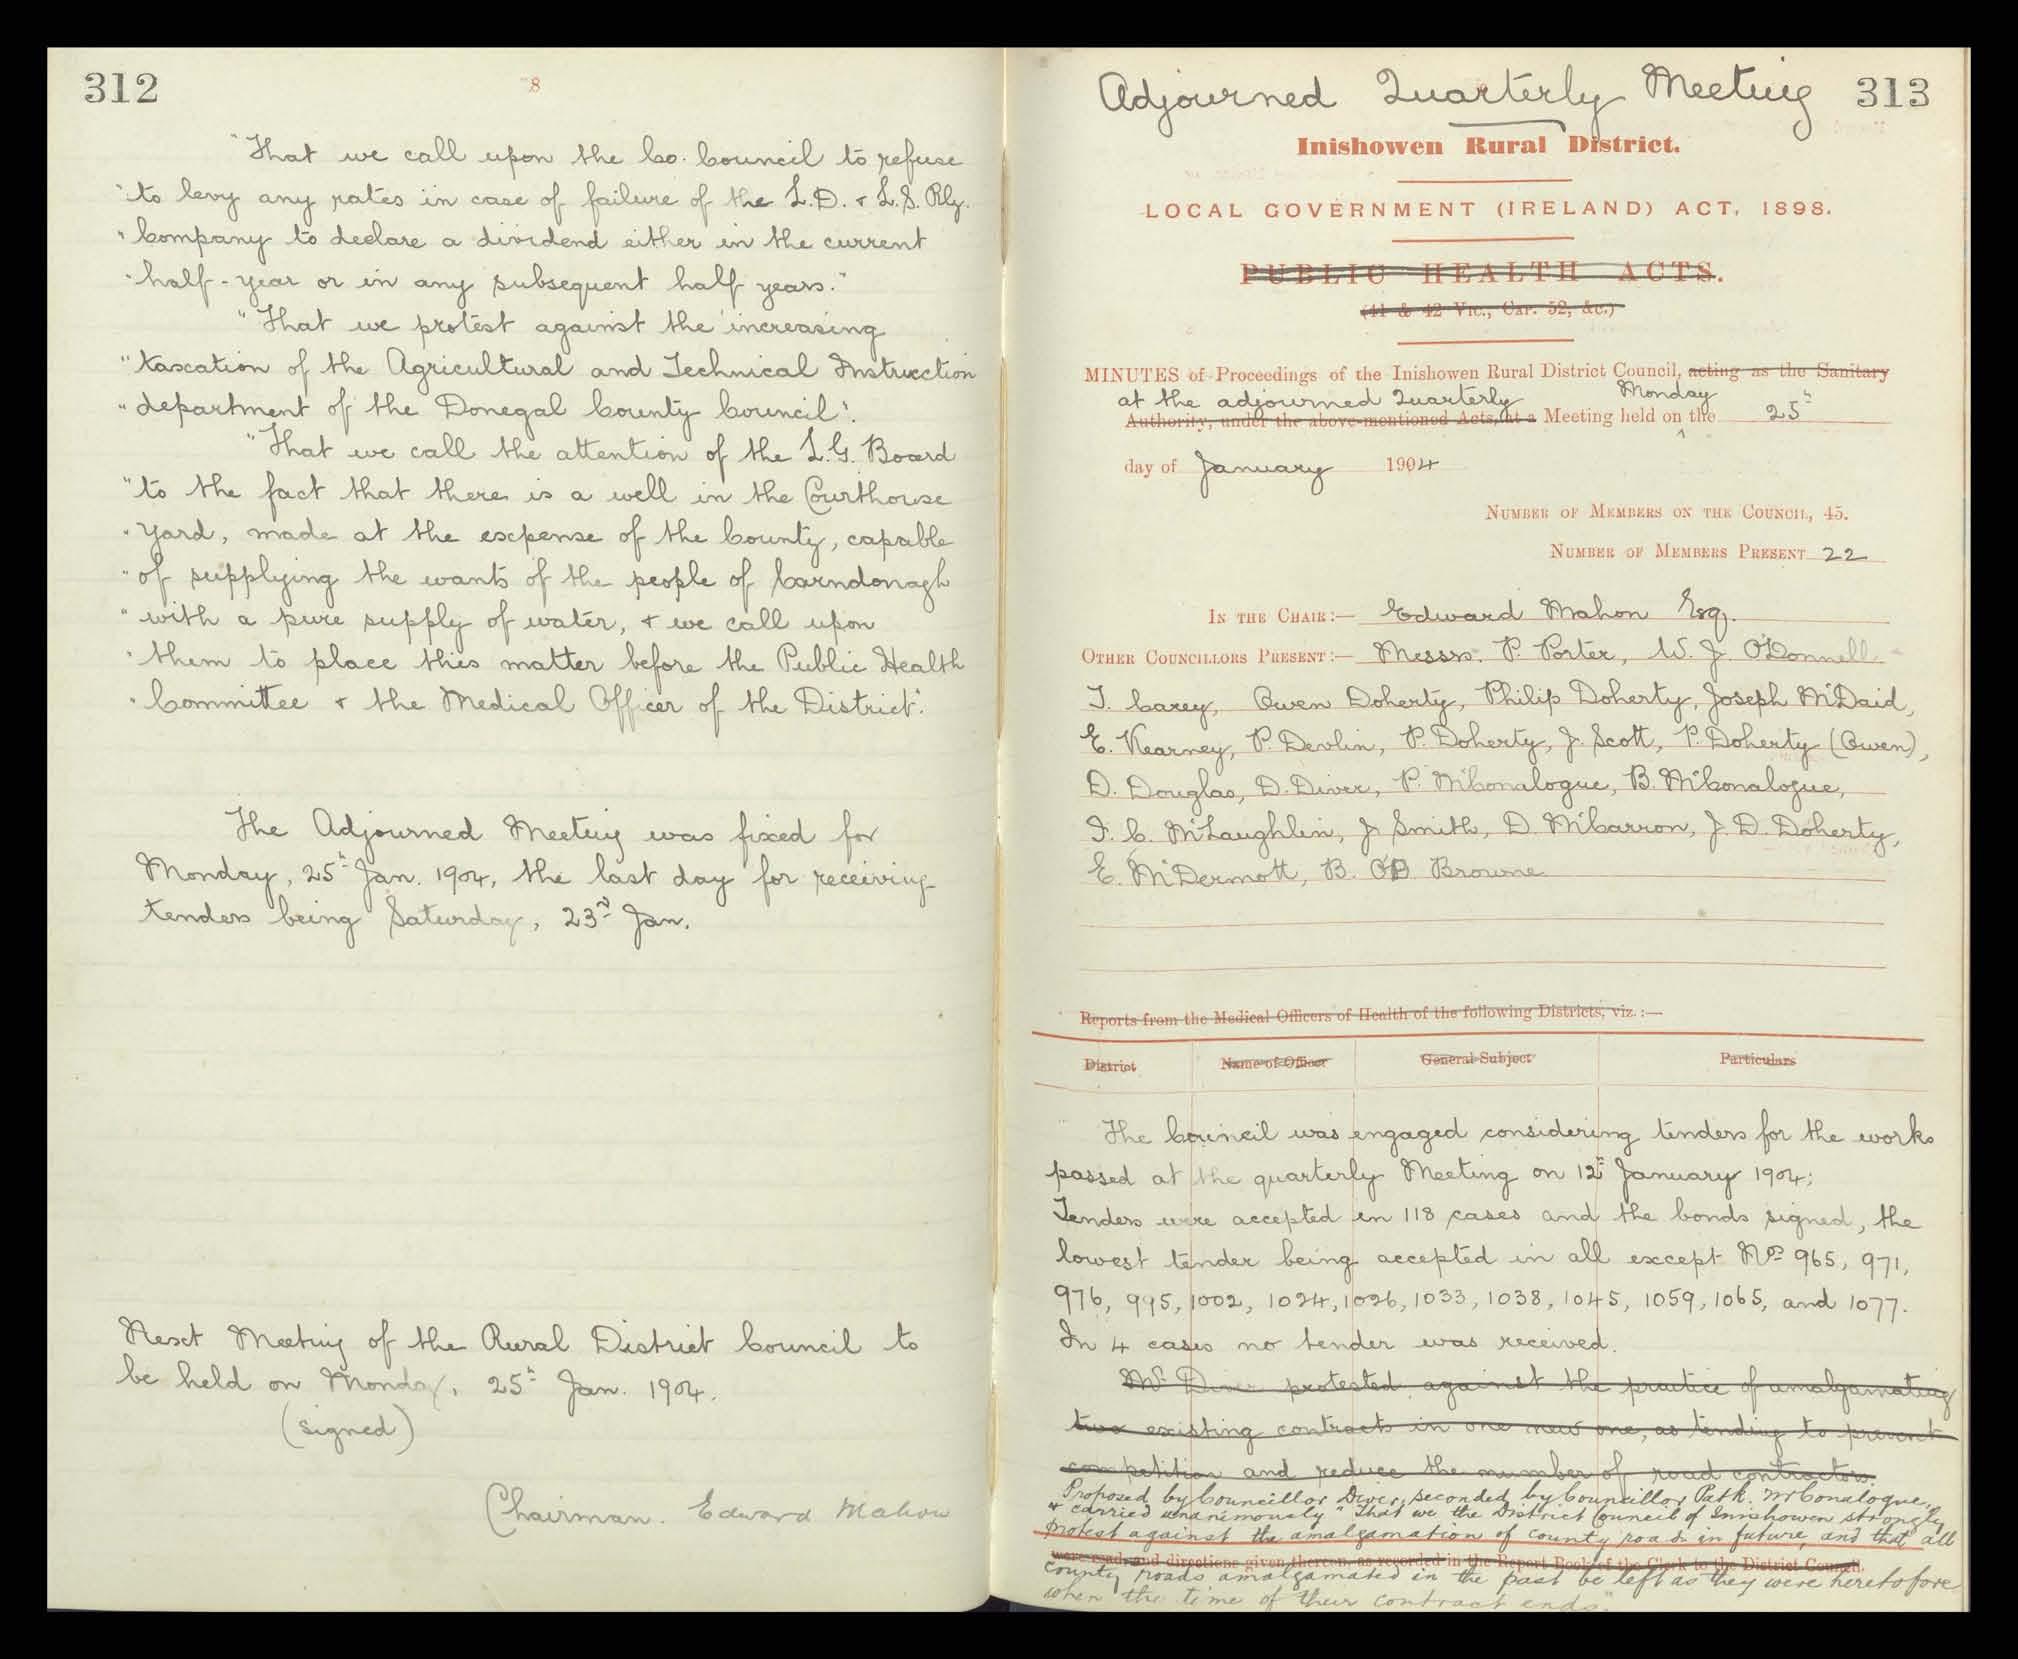 312
8
"That we call upon the Co. Council to refuse
"to levy any rates in case of failure of the L.D. & L.S. Rly.
"Company to declare a dividend either in the current
"half-year or in any subsequent half years."
"That we protest against the increasing
"taxation of the Agricultural and Technical Instruction
"department of the Donegal County Council".
"That we call the attention of the L.G. Board
"to the fact that there is a well in the Courthouse
"Yard, made at the expense of the County, capable
"of supplying the wants of the people of Carndonagh
"with a pure supply of water, & we call upon
"them to place this matter before the Public Health
"Committee & the Medical Officer of the District".
The Adjourned Meeting was fixed for
Monday, 25th Jan. 1904, the last day for receiving
tenders being Saturday, 23rd Jan.
Next Meeting of the Rural District Council to
be held on Monday, 25th Jan. 1904.
(signed)
Chairman. Edward Mahon
Adjourned Quarterly Meeting 313
Inishowen Rural District.
LOCAL GOVERNMENT (IRELAND) ACT, 1898.
PUBLIC HEALTH ACTS.
(41 & 42 Vic., Cap. 52, &c.)
MINUTES of Proceedings of the Inishowen Rural District Council, acting as the Sanitary
at the adjourned Quarterly Monday
Authority, under the above-mentioned Acts, at a Meeting held on the 25th
day of January 1904
NUMBER OF MEMBERS ON THE COUNCIL, 45.
NUMBER OF MEMBERS PRESENT 22
IN THE CHAIR:— Edward Mahon Esq.
OTHER COUNCILLORS PRESENT:— Messrs. P. Porter, W. J. O'Donnell
T. Carey, Owen Doherty, Philip Doherty, Joseph McDaid,
E. Kearney, P. Devlin, P. Doherty, J. Scott, P. Doherty (Owen),
D. Douglas, D. Diver, P. McConalogue, B. McConalogue,
F. C. McLaughlin, J Smith, D. McCarron, J. D. Doherty,
E. McDermott, B. O'B Browne
Reports from the Medical Officers of Health of the following Districts, viz.:—
District Name of Officer General Subject Particulars
The Council was engaged considering tenders for the works
passed at the quarterly Meeting on 12th January 1904;
Tenders were accepted in 118 cases and the bonds signed, the
lowest tender being accepted in all except Nos 965, 971,
976, 995, 1002, 1024, 1026, 1033, 1038, 1045, 1059, 1065, and 1077.
In 4 cases no tender was received.
Mr Diver protested against the practice of amalgamating
two existing contracts in one new one, as tending to prevent
competition and reduce the number of road contractors.
Proposed by Councillor Diver, seconded by Councillor Patk. McConalogue,
& carried unanimously "That we the District Council of Innishowen strongly
protest against the amalgamation of county roads in future, and that all
were read, and directions given thereon, as recorded in the Report Book of the Clerk to the District Council.
county roads amalgamated in the past be left as they were heretofore
when the time of their contract ends."